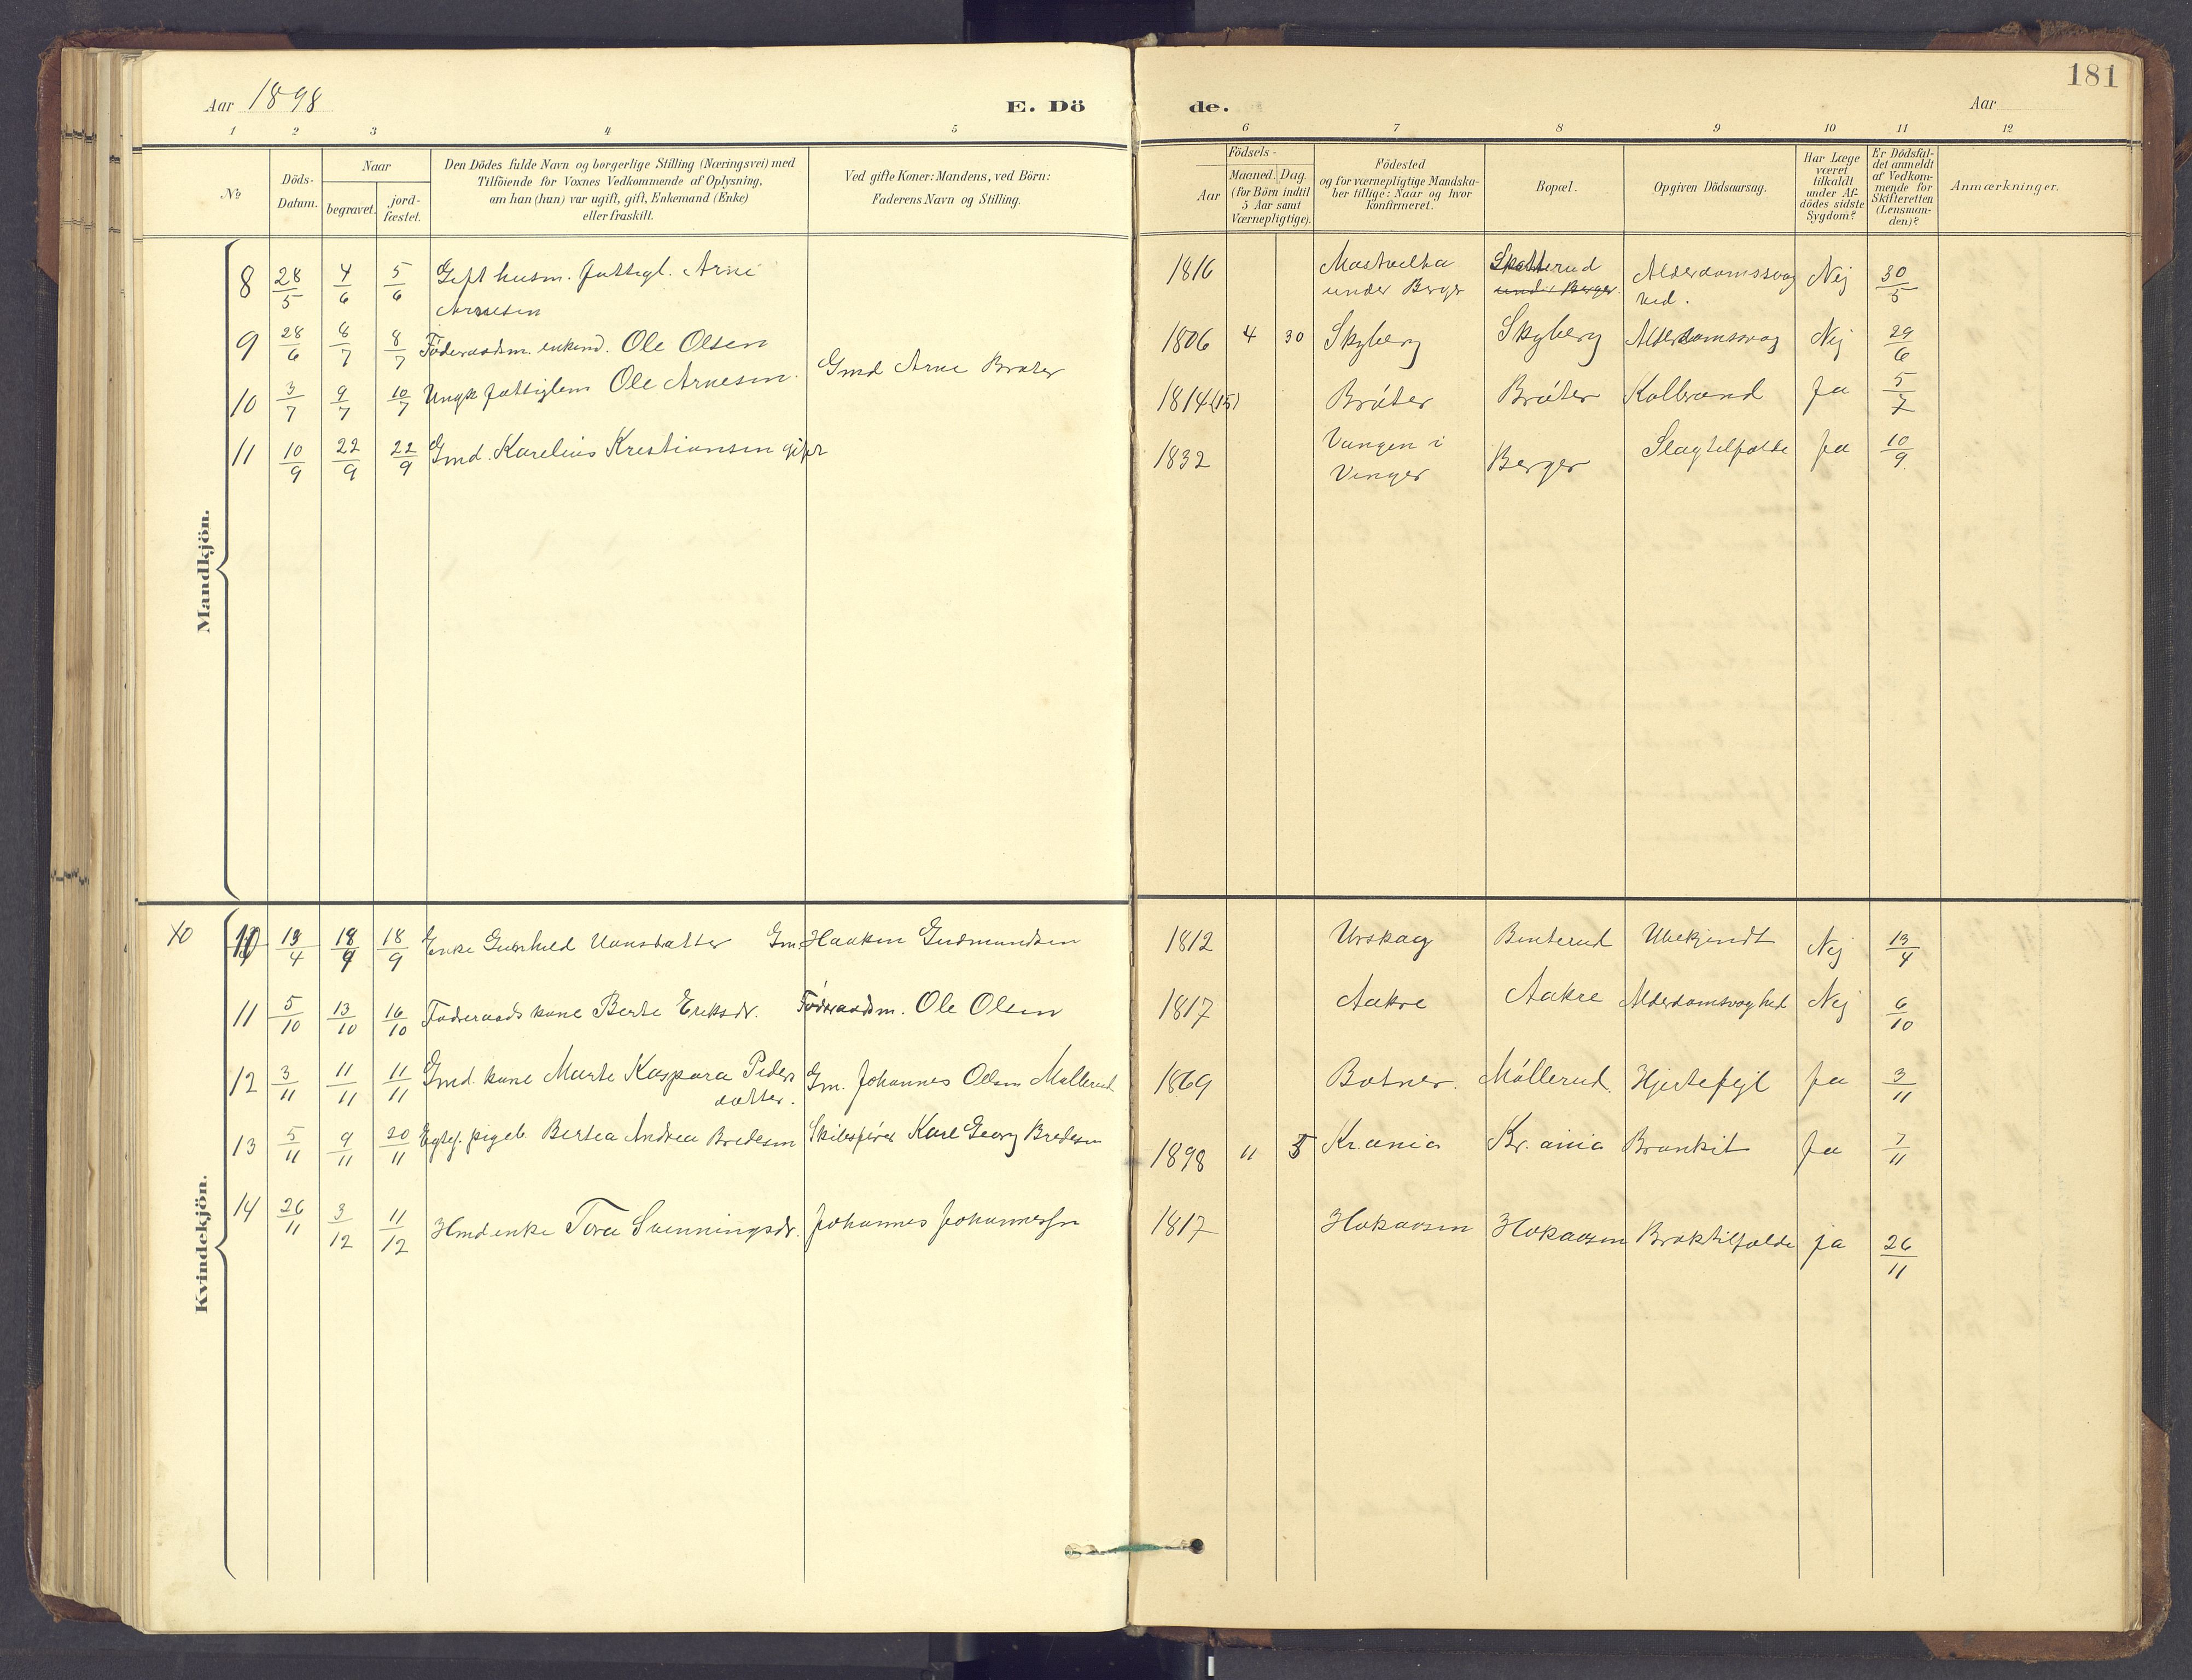 181
Aar 1898
E. Dö
de.
Aar
1 2 3 4 5 6 7 8 9 10 11 12
No
Döds-Datum.
Naar
begravet.
jord-fæstet.
Den Dödes fulde Navn og borgerlige Stilling (Næringsvei) med
Tilföiende for Voxnes Vedkommende af Oplysning,
om han (hun) var ugift, gift, Enkemand (Enke)
eller fraskilt.
Ved gifte Koner: Mandens, ved Börn:
Faderens Navn og Stilling.
Födsels-
Aar
Maaned. Dag.
(for Börn indtil
5 Aar samt
Værnepligtige).
Födested
og for værnepligtige Mandska-
ber tillige: Naar og hvor
konfirmeret.
Bopæl.
Opgiven Dödsaarsag.
Har Læge
været
tilkaldt
under Af-
dödes sidste
Sygdom?
Er Dödsfal-
det anmeldt
af Vedkom-
mende for
Skifteretten
(Lensman-
den)?
Anmærkninger.
Mandkjön.
8 28/5 4/6 5/6 Gift husm. fattigl. Arne 1816 Skatterud Alderdomssvag Nej 30/5
Arnesen under Berger under Berger hed.
9 28/6 8/7 8/7 Föderaadsm. enkemd. Ole Olsen 1806 4 30 Skyberg Skyberg Alderdomssvag Nej 29/6
10 3/7 9/7 10/7 Ungk fattiglem Ole Arnesen. Gmd Arne Bråter 1814(15) Bråter Bråter Kolbrand Ja 5/7
11 10/9 22/9 22/9 Gmd. Karelius Kristiansen gift 1832 Vangen i Berger Slagtilfælde Ja 10/9
Vinger
Kvindekjön.
10 13/4 18/9 18/9 Enke Gunhild Gm. Haaken Gudmundsen 1812 Urskog Ubekjendt Nej 13/4
11 5/10 13/10 16/10 Föderaads kone Berte Eriksdr. Föderaadsm. Ole Olsen 1817 Aakre Aakre Alderdomssvaghed Nej 6/10
12 3/11 11/11 11/11 Gmd. kone Marte Kaspara Peders Gm. Johannes Olsen Möllerud 1869 Botner. Möllerud Hjertefejl Ja 3/11
datter.
13 5/11 9/11 20/11 Egtef. pigeb. Bertea Andrea Bredesen Skibsförer Karl Georg Bredesen 1898 11 5 Kr.ania Kr.ania Bronkit Ja 7/11
14 26/11 3/12 11/12 Hmd enke Tora Svenningsdr. Johannes Johannessen 1817 Hokaasen Hokaasen Broktilfælde ja 26/11